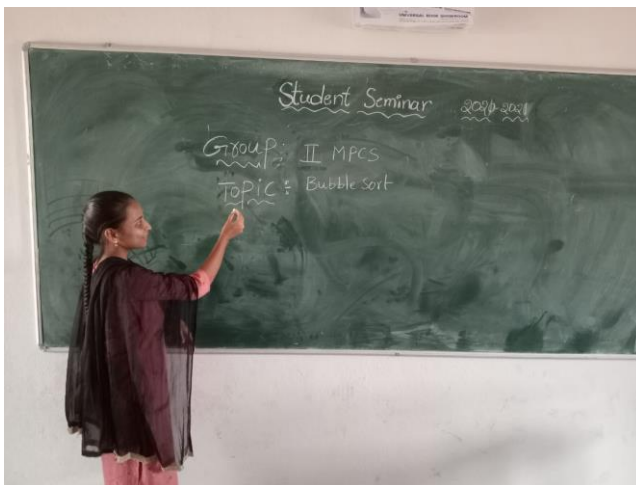 Student Seminar 2020-2021
Group: II MPCS
Topic : Bubble Sort